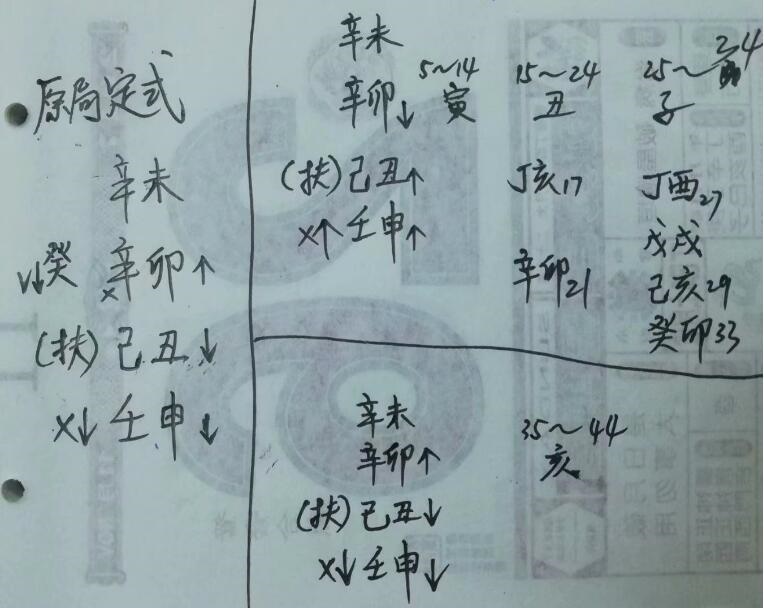 原局定式
辛未
√↓癸 ×辛卯↑
(扶)己丑↓
×↓壬申↓
辛未
辛卯↓ 5~14 寅 15~24 丑 25~34 子
(扶)己丑↑ 丁亥17 丁酉27
×↑壬申↑ 戊戌
辛卯21 己亥29
癸卯33
辛未
辛卯↑ 35~44 亥
(扶)己丑↓
×↓壬申↓